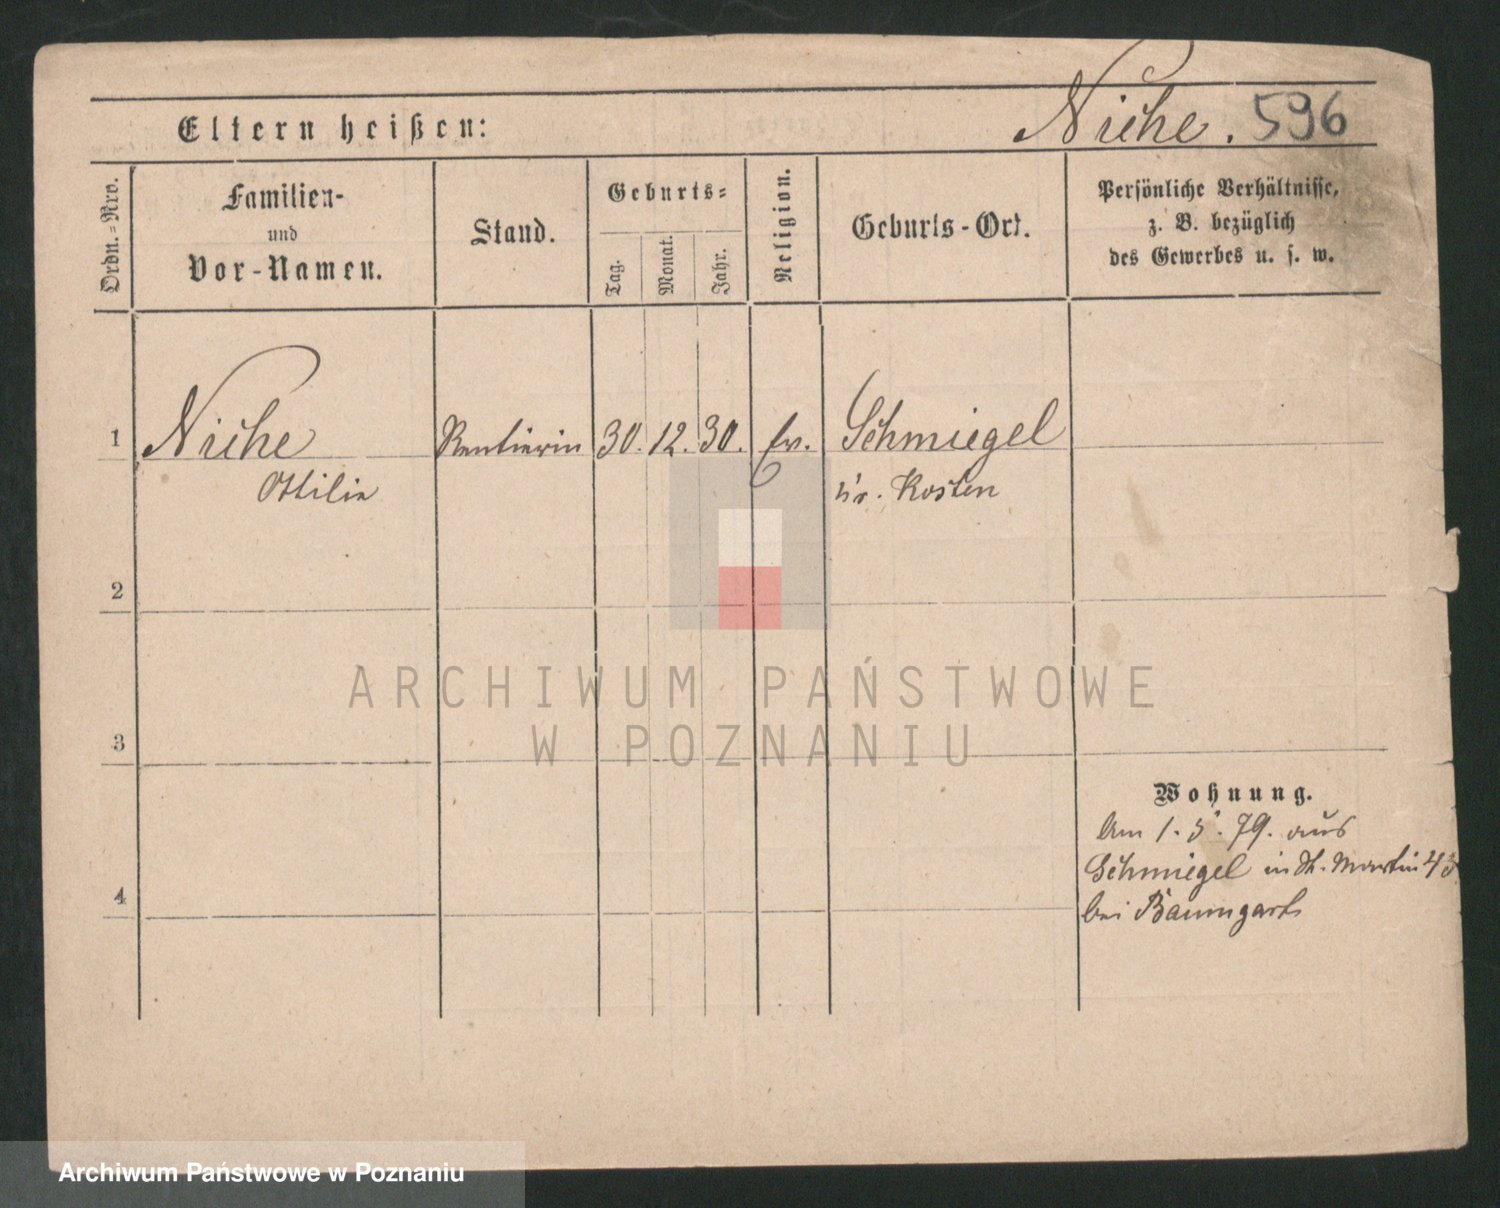 Eltern heißen:
Niche. 596
Ordn.-Nro.
Familien-
und
Vor-Namen.
Stand.
Geburts-
Tag.
Monat.
Jahr.
Religion.
Geburts-Ort.
Persönliche Verhältnisse,
z. B. bezüglich
des Gewerbes u. s. w.
1 Niche Rentierin 30. 12. 30. Ev. Schmiegel
Ottilie Kr. Kosten
2
3
4
Wohnung.
Am 1. 5. 79. aus
Schmiegel in St. Martin 43
bei Baumgart
ARCHIWUM PAŃSTWOWE
W POZNANIU
Archiwum Państwowe w Poznaniu